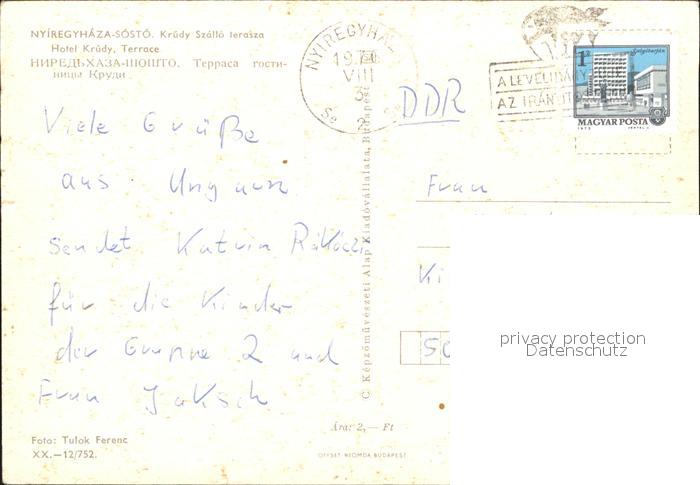 NYÍREGYHÁZA-SÓSTÓ. Krúdy Szálló terasza
Hotel Krúdy, Terrace
НИРЕДЬХАЗА-ШОШТО. Терраса гости-
ницы Круди
Viele Grüße
aus Ungarn
sendet Katrin Rákóczi
für die Kinder
der Gruppe 2 und
Frau Jaksch
Foto: Tulok Ferenc
XX.—12/752.
C Képzőművészeti Alap Kiadóvállalata, Budapest
NYÍREGYHÁZ
VIII
3
2
A LEVÉLIRÁNY
AZ IRÁNYÍTÓ
1Ft
Salgótarján
MAGYAR POSTA
1973
DDR
Frau
Ki
50
Ára: 2,— Ft
OFFSET-NYOMDA BUDAPEST
privacy protection
Datenschutz